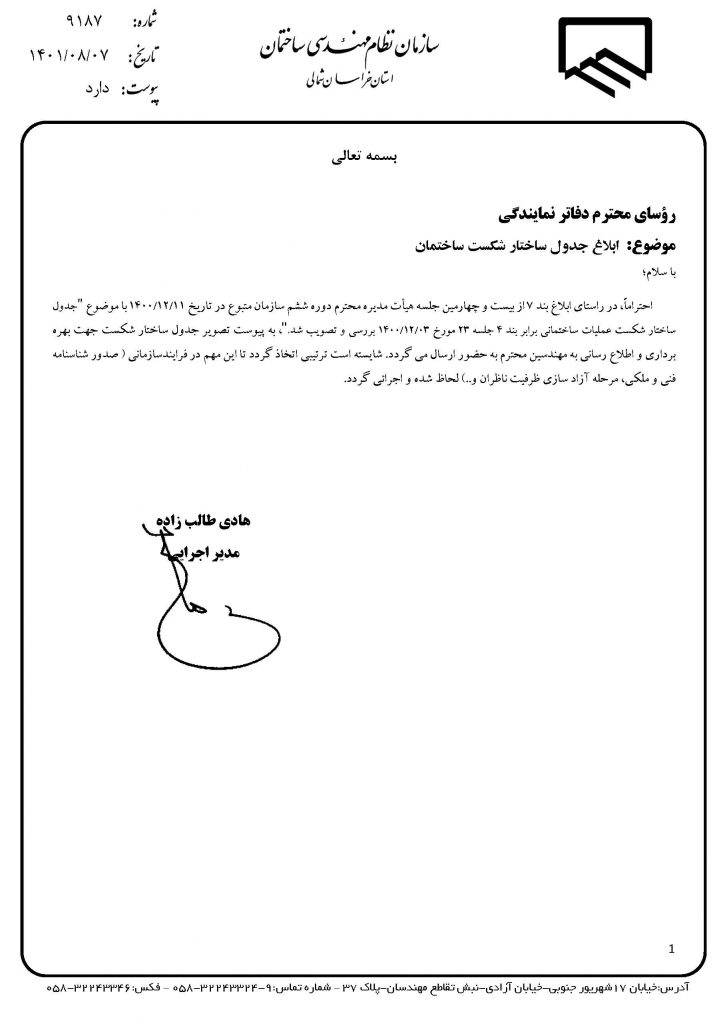 سازمان نظام مهندسی ساختمان
استان خراسان شمالی
شماره: ۹۱۸۷
تاریخ: ۱۴۰۱/۰۸/۰۷
پیوست: دارد
بسمه تعالی
رؤسای محترم دفاتر نمایندگی
موضوع: ابلاغ جدول ساختار شکست ساختمان
با سلام؛
احتراماً، در راستای ابلاغ بند ۷ از بیست و چهارمین جلسه هیأت مدیره محترم دوره ششم سازمان متبوع در تاریخ ۱۴۰۰/۱۲/۱۱ با موضوع "جدول
ساختار شکست عملیات ساختمانی برابر بند ۴ جلسه ۲۳ مورخ ۱۴۰۰/۱۲/۰۳ بررسی و تصویب شد."، به پیوست تصویر جدول ساختار شکست جهت بهره
برداری و اطلاع رسانی به مهندسین محترم به حضور ارسال می گردد. شایسته است ترتیبی اتخاذ گردد تا این مهم در فرایندسازمانی ( صدور شناسنامه
فنی و ملکی، مرحله آزاد سازی ظرفیت ناظران و..) لحاظ شده و اجرائی گردد.
هادی طالب زاده
مدیر اجرایی
1
آدرس:خیابان ۱۷شهریور جنوبی-خیابان آزادی-نبش تقاطع مهندسان-پلاک ۳۷ - شماره تماس:۹-۳۲۲۴۳۳۲۴-۰۵۸ - فکس:۳۲۲۴۳۳۴۶-۰۵۸